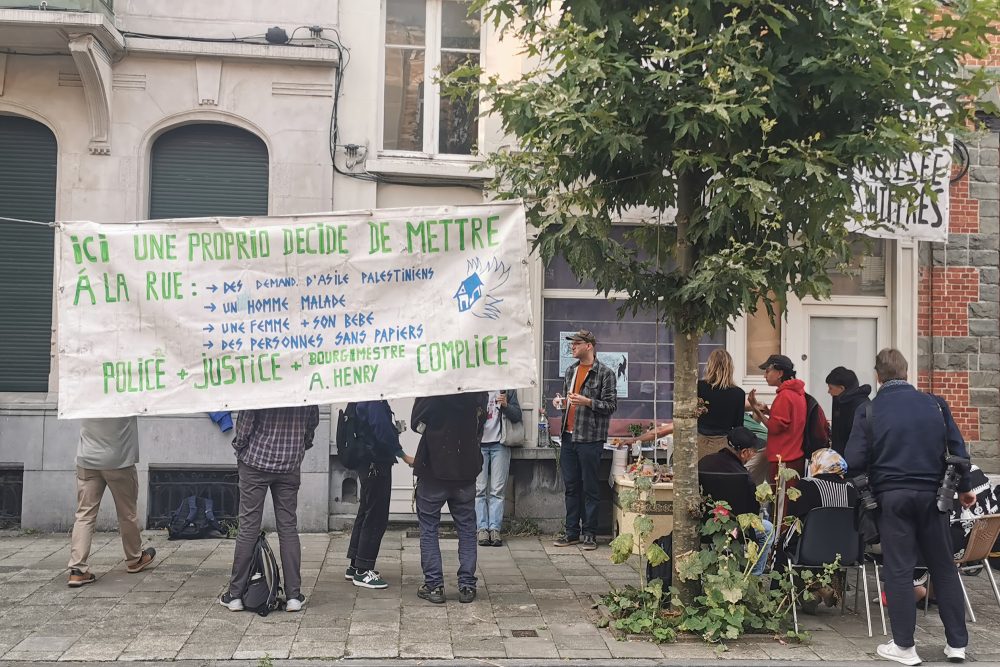 ici UNE PROPRIO DECIDE DE METTRE
Á LA RUE :
→ DES DEMAND. D'ASILE PALESTINIENS
→ UN HOMME MALADE
→ UNE FEMME + SON BEBE
→ DES PERSONNES SANS PAPIERS
POLICE + JUSTICE + BOURGMESTRE A. HENRY COMPLICE